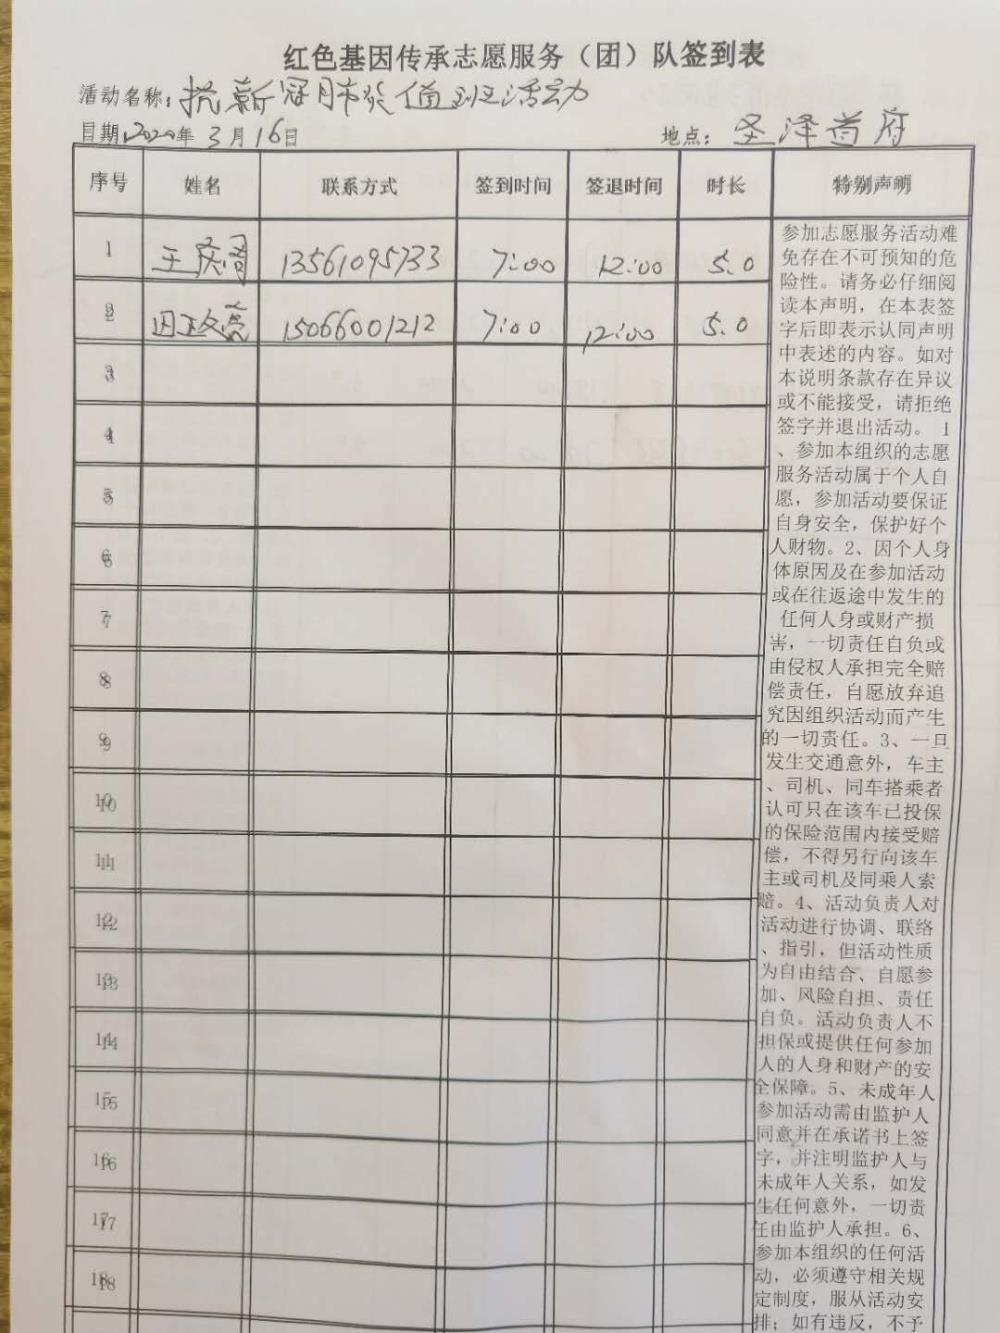 红色基因传承志愿服务（团）队签到表
活动名称：抗新冠肺炎值班活动
日期2020年3月16日 地点：圣泽首府
序号 姓名 联系方式 签到时间 签退时间 时长 特别声明
1 王庆周 13561095733 7:00 12:00 5.0
2 田政亮 15066001212 7:00 12:00 5.0
3
4
5
6
7
8
9
10
11
12
13
14
15
16
17
18
参加志愿服务活动难
免存在不可预知的危
险性。请务必仔细阅
读本声明，在本表签
字后即表示认同声明
中表述的内容。如对
本说明条款存在异议
或不能接受，请拒绝
签字并退出活动。1
、参加本组织的志愿
服务活动属于个人自
愿，参加活动要保证
自身安全，保护好个
人财物。2、因个人身
体原因及在参加活动
或在往返途中发生的
任何人身或财产损
害，一切责任自负或
由侵权人承担完全赔
偿责任，自愿放弃追
究因组织活动而产生
的一切责任。3、一旦
发生交通意外，车主
、司机、同车搭乘者
认可只在该车已投保
的保险范围内接受赔
偿，不得另行向该车
主或司机及同乘人索
赔。4、活动负责人对
活动进行协调、联络
、指引，但活动性质
为自由结合、自愿参
加、风险自担、责任
自负。活动负责人不
担保或提供任何参加
人的人身和财产的安
全保障。5、未成年人
参加活动需由监护人
同意并在承诺书上签
字，并注明监护人与
未成年人关系，如发
生任何意外，一切责
任由监护人承担。6、
参加本组织的任何活
动，必须遵守相关规
定制度，服从活动安
排；如有违反，不予